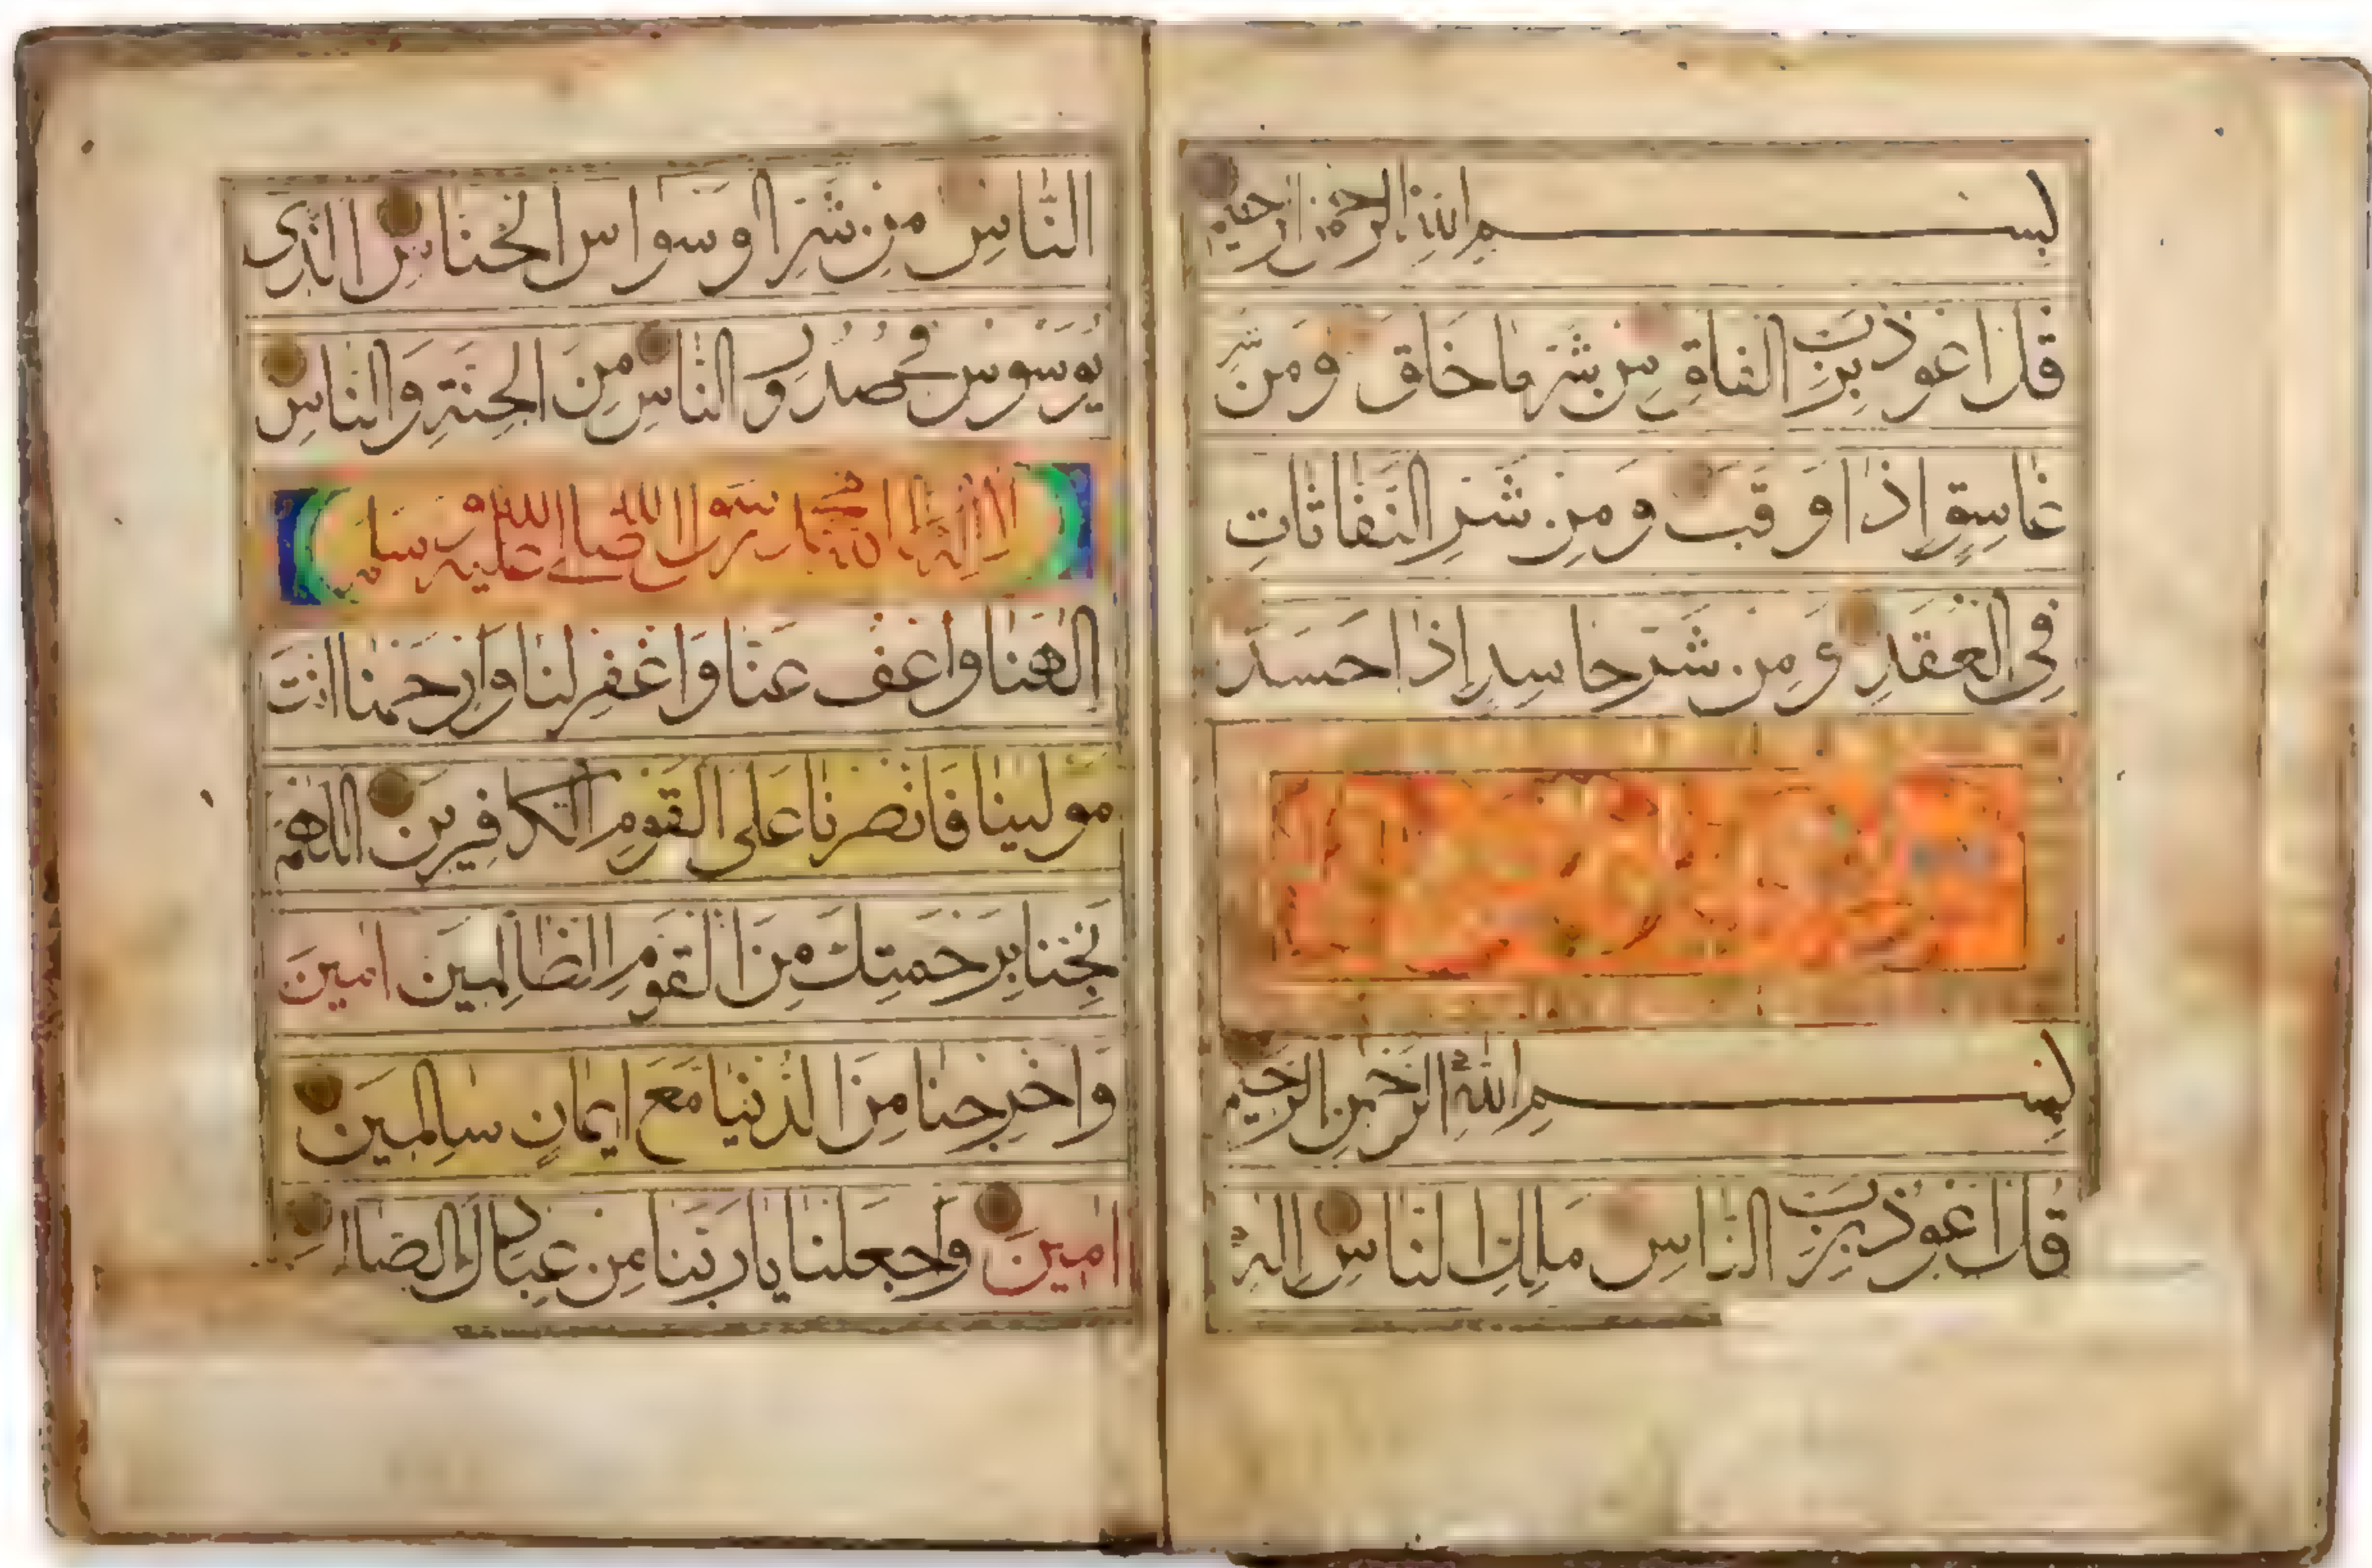 بسم الله الرحمن الرحيم
قل اعوذ برب الفلق من شر ما خلق ومن شر
غاسق اذا وقب ومن شر النفاثات
في العقد ومن شر حاسد اذا حسد
بسم الله الرحمن الرحيم
قل اعوذ برب الناس ملك الناس اله
الناس من شر الوسواس الخناس الذي
يوسوس في صدور الناس من الجنة والناس
لا اله الا الله محمد رسول الله صلى الله عليه وسلم
الهنا واعف عنا واغفر لنا وارحمنا انت
مولينا فانصرنا على القوم الكافرين اللهم
نجنا برحمتك من القوم الظالمين امين
واخرجنا من الدنيا مع ايمان سالمين
امين واجعلنا يا ربنا من عبادك